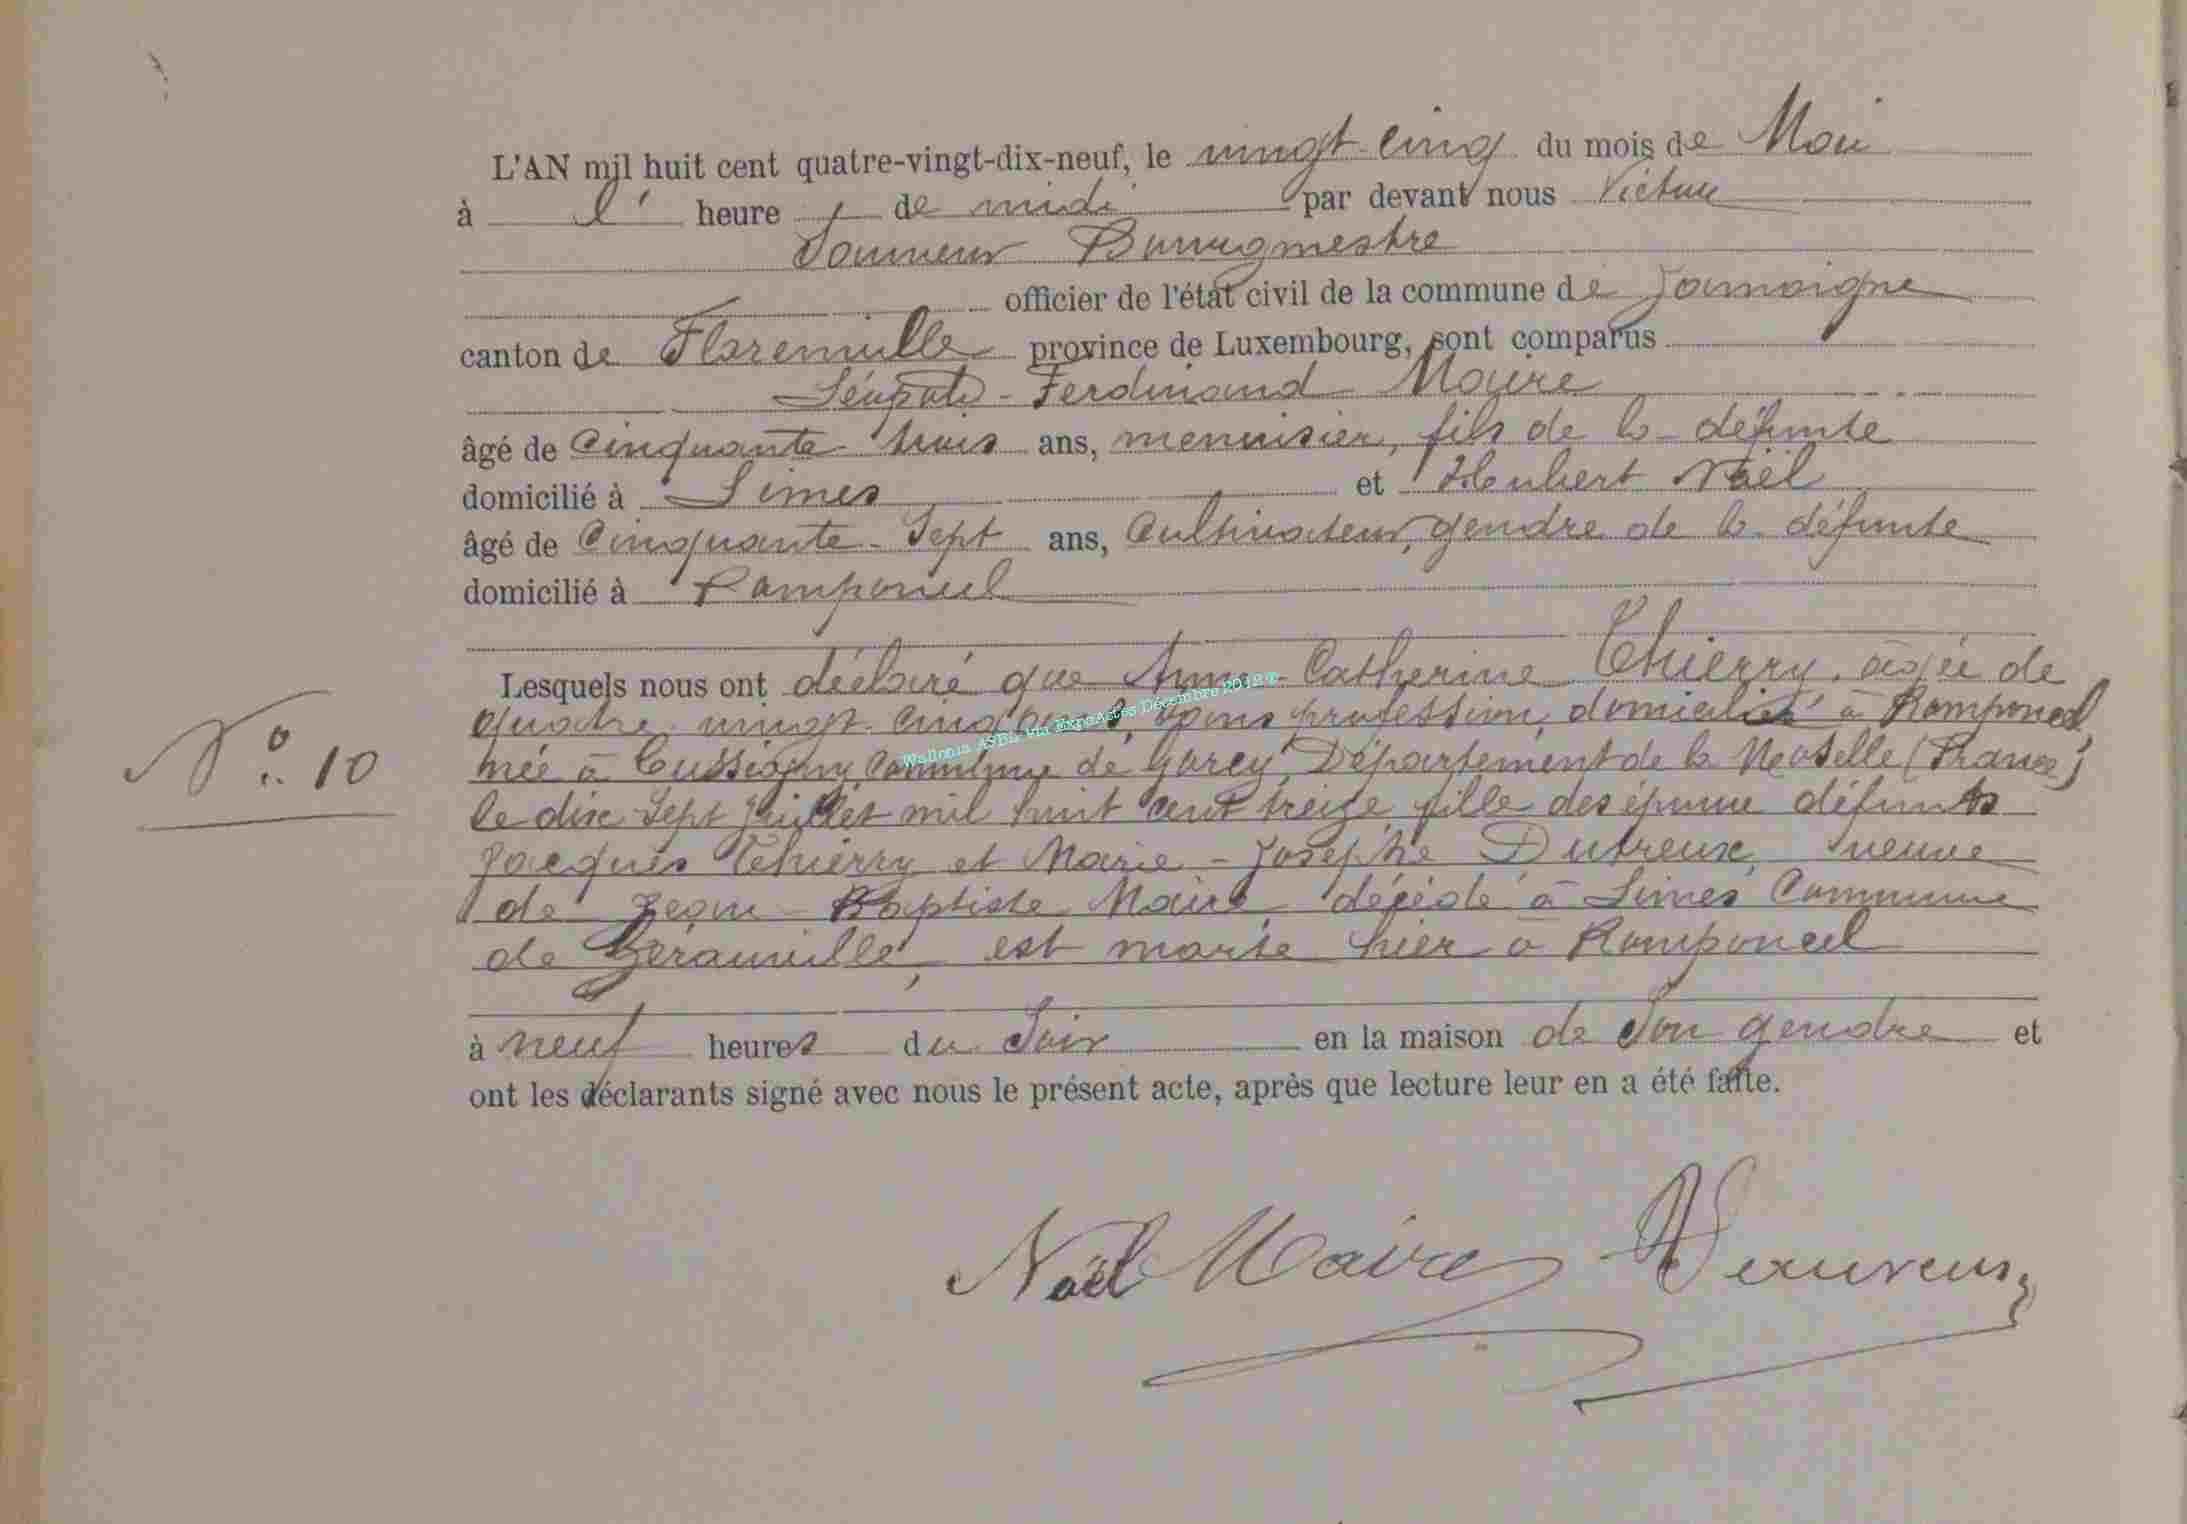 L'AN mil huit cent quatre-vingt-dix-neuf, le vingt-cinq du mois de Mai
à l' heure de midi par devant nous Victor
Bourgmestre
officier de l'état civil de la commune de Jamoigne
canton de Florenville province de Luxembourg, sont comparus
Léopold-Ferdinand Maire
âgé de Cinquante-trois ans, menuisier, fils de la défunte
domicilié à Limes et Hubert Noël
âgé de Cinquante-Sept ans, Cultivateur, gendre de la défunte
domicilié à Romponcel
Lesquels nous ont déclaré que Anne-Catherine Thierry, âgée de
quatre-vingt-cinq ans, sans profession, domiciliée à Romponcel,
née à Cussigny Commune de Gorcy, Département de la Moselle (France)
le dix-Sept Juillet mil huit cent treize, fille des époux défunts
Jacques Thierry et Marie-Josèphe Dutreux, veuve
de Jean-Baptiste Maire, décédé à Limes Commune
de Gérouville, est morte hier à Romponcel
à neuf heures du Soir en la maison de Son gendre et
ont les déclarants signé avec nous le présent acte, après que lecture leur en a été faite.
N° 10
Wallonia ASBL via ExpoActes Décembre 2018
Noël Maire